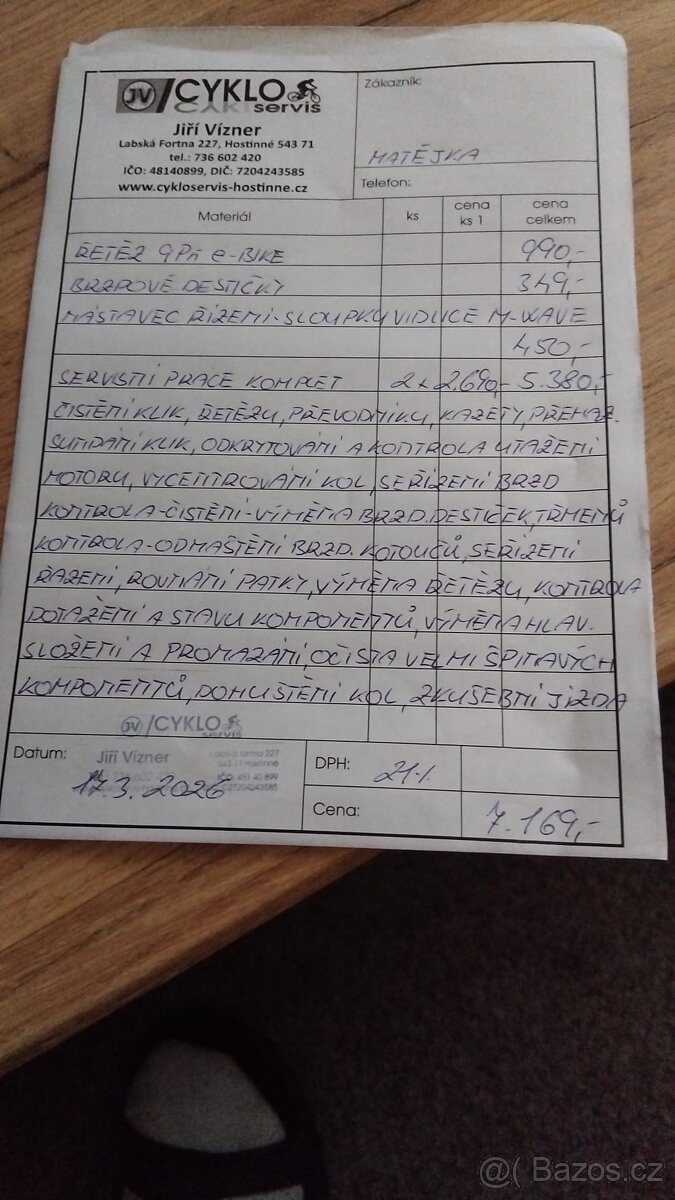 JV /CYKLO
servis
Jiří Vízner
Labská Fortna 227, Hostinné 543 71
tel.: 736 602 420
IČO: 48140899, DIČ: 7204243585
www.cykloservis-hostinne.cz
Zákazník:
MATĚJKA
Telefon:
Materiál ks cena ks 1 cena celkem
ŘETĚZ 9Př e-BIKE 990,-
BRZDOVÉ DESTIČKY 349,-
NÁSTAVEC ŘÍZENÍ-SLOUPKU VIDLICE M-WAVE
450,-
SERVISNÍ PRÁCE KOMPLET 2x 2.690,- 5.380,-
ČIŠTĚNÍ KLIK, ŘETĚZU, PŘEVODNÍKU, KAZETY, PŘEHAZ.
SUNDÁNÍ KLIK, ODKRYTOVÁNÍ A KONTROLA UTAŽENÍ
MOTORU, VYCENTROVÁNÍ KOL, SEŘÍZENÍ BRZD
KONTROLA-ČIŠTĚNÍ-VÝMĚNA BRZD. DESTIČEK, TŘMENŮ
KONTROLA-ODMAŠTĚNÍ BRZD. KOTOUČŮ, SEŘÍZENÍ
ŘAZENÍ, ROVNÁNÍ PATKY, VÝMĚNA ŘETĚZU, KONTROLA
DOTAŽENÍ A STAVU KOMPONENTŮ, VÝMĚNA HLAV.
SLOŽENÍ A PROMAZÁNÍ, OČISTA VELMI ŠPINAVÝCH
KOMPONENTŮ, DOHUŠTĚNÍ KOL, ZKUŠEBNÍ JÍZDA
JV /CYKLO
servis
Jiří Vízner
Labská Fortna 227
543 71 Hostinné
Datum: 17.3.2026
DPH: 21%
Cena: 7.169,-
@( Bazos.cz